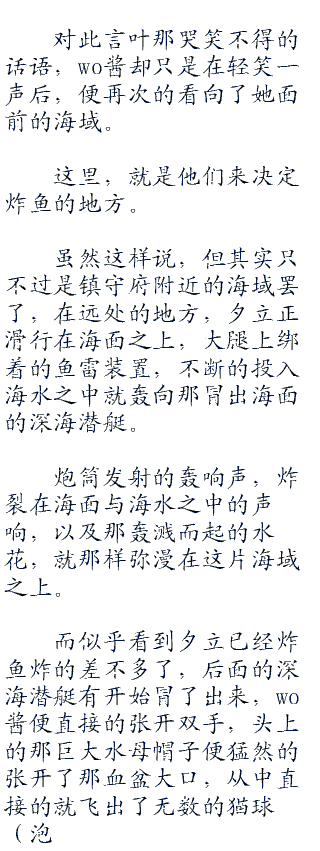 对此言叶那哭笑不得的
话语，wo酱却只是在轻笑一
声后，便再次的看向了她面
前的海域。
这里，就是他们来决定
炸鱼的地方。
虽然这样说，但其实只
不过是镇守府附近的海域罢
了，在远处的地方，夕立正
滑行在海面之上，大腿上绑
着的鱼雷装置，不断的投入
海水之中就轰向那冒出海面
的深海潜艇。
炮筒发射的轰响声，炸
裂在海面与海水之中的声
响，以及那轰溅而起的水
花，就那样弥漫在这片海域
之上。
而似乎看到夕立已经炸
鱼炸的差不多了，后面的深
海潜艇有开始冒了出来，wo
酱便直接的张开双手，头上
的那巨大水母帽子便猛然的
张开了那血盆大口，从中直
接的就飞出了无数的猫球
（泡